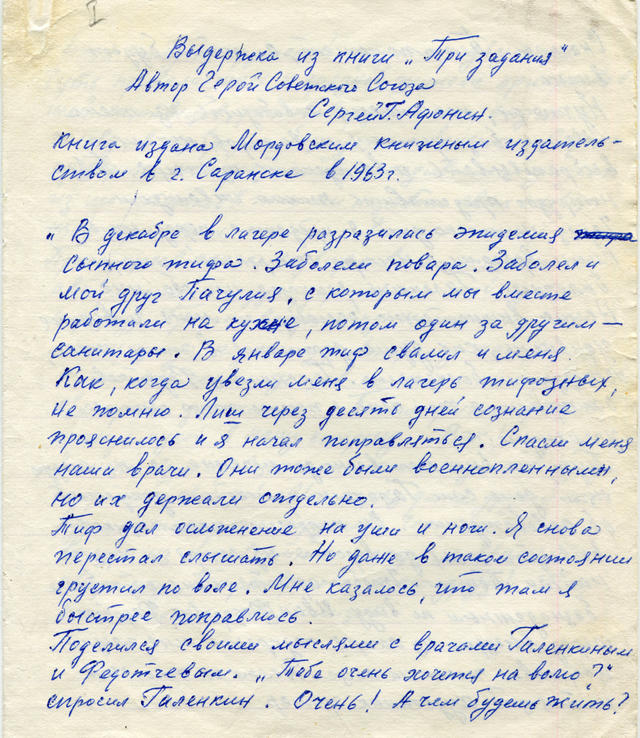 I
Выдержка из книги „Три задания"
Автор Герой Советского Союза
Сергей Г. Афонин.
Книга издана Мордовским книжным издатель-
ством в г. Саранске в 1963 г.
„В декабре в лагере разразилась эпидемия тифа
сыпного тифа. Заболели повара. Заболел и
мой друг Пачулия, с которым мы вместе
работали на кухне, потом один за другим —
санитары. В январе тиф свалил и меня.
Как, когда увезли меня в лагерь тифозных,
не помню. Лиш через десять дней сознание
прояснилось и я начал поправляться. Спасли меня
наши врачи. Они тоже были военнопленными,
но их держали отдельно.
Тиф дал осложнение на уши и ноги. Я снова
перестал слышать. Но даже в таком состоянии
грустил по воле. Мне казалось, что там я
быстрее поправлюсь.
Поделился своими мыслями с врачами Галенкиным
и Федотчевым. „Тебе очень хочется на волю?"
спросил Галенкин. Очень! А чем будешь жить?